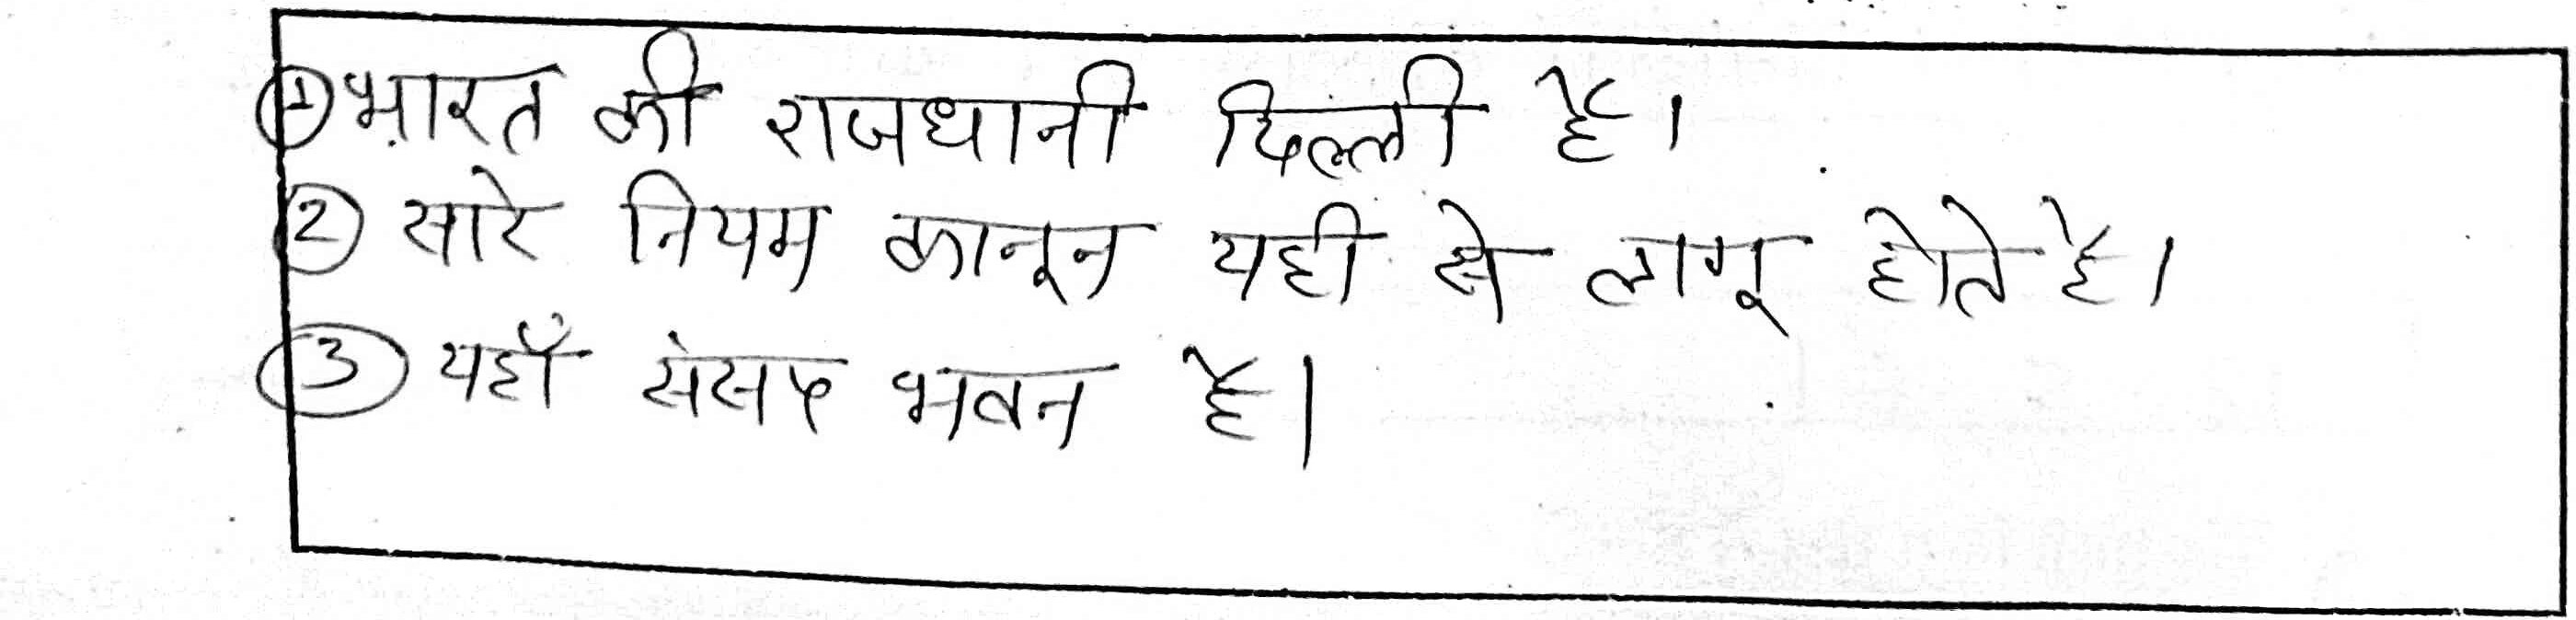 ① भारत की राजधानी दिल्ली है।
② सारे नियम कानून यही से लागू होते है।
③ यहाँ संसद भवन है।